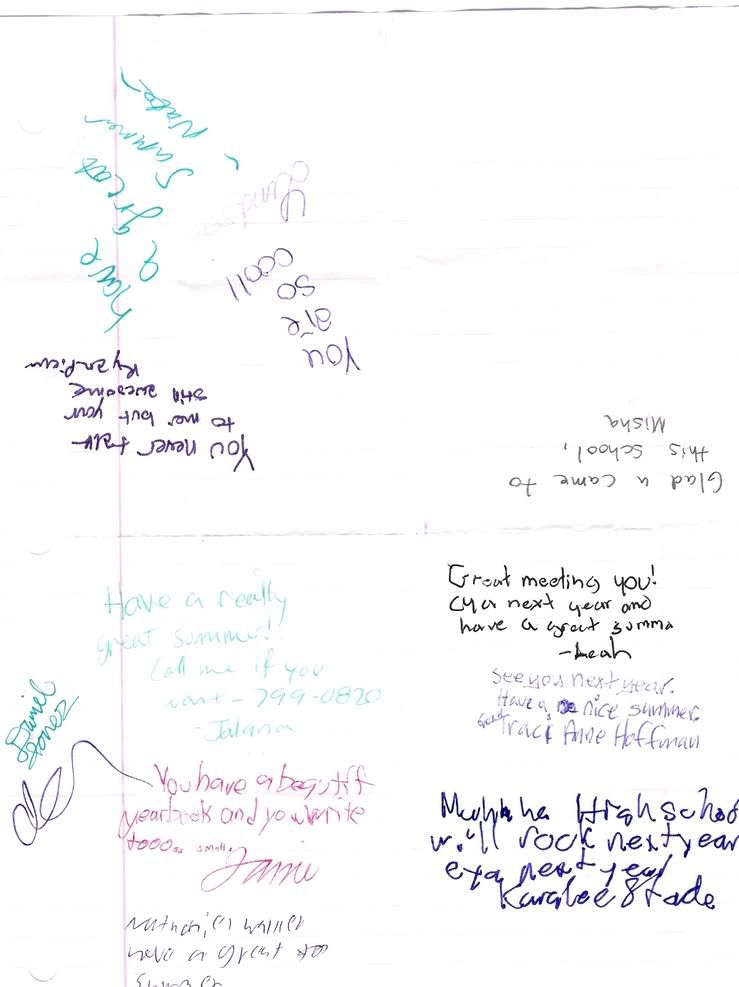 have
a great
summer
You
are
so
cooll
You never talk
to me but your
still awesome
Glad u came to
this school,
Misha
Have a really
great summer!
Call me if you
want - 799-0820
Jalana
Great meeting you!
cya next year and
have a great summa
-Leah
see you next year.
Have a nice summer.
from Traci Anne Hoffman
Daniel
Jonez
You have a beautiff
yearbook and you write
tooo small
Jamie
High school
will rock next year
cya next year
have a great
summer